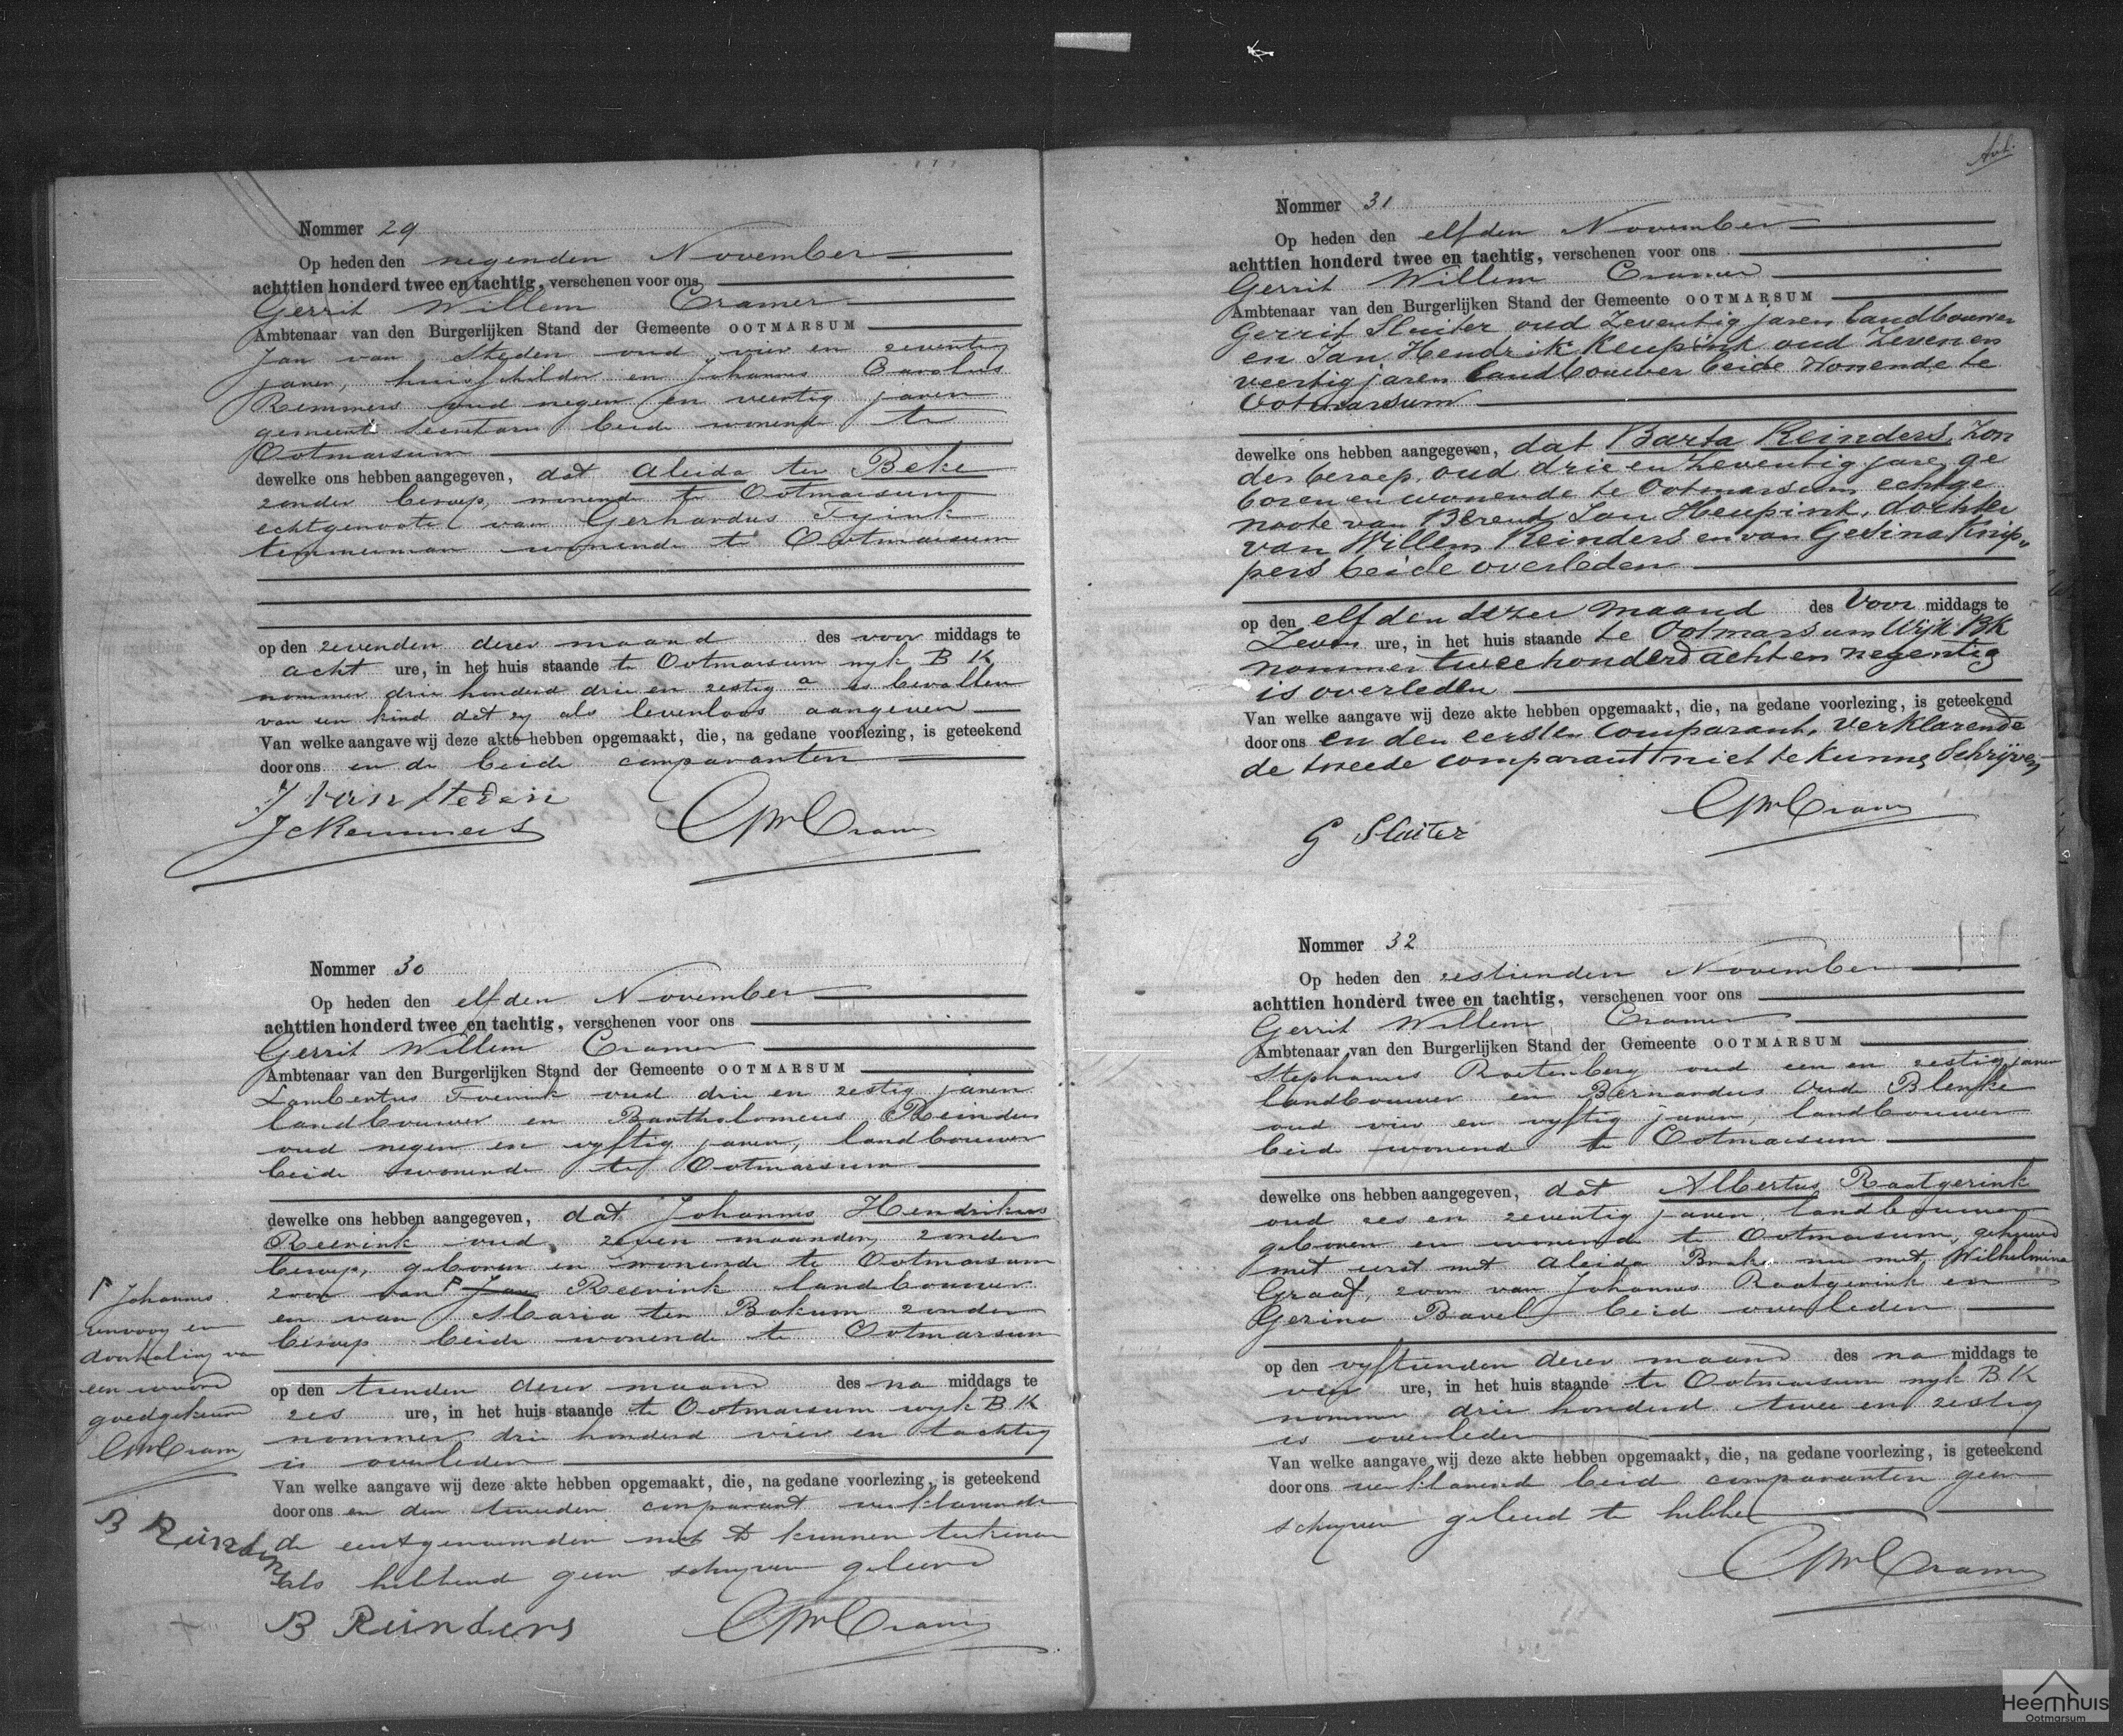 Nommer 29
Op heden den negenden November
achttien honderd twee en tachtig, verschenen voor ons
Gerrit Willem Cramer
Ambtenaar van den Burgerlijken Stand der Gemeente OOTMARSUM
Jan van Steden oud vier en zeventig
jaren, huisschilder en Johannes Carolus
Remmers oud negen en veertig jaren
gemeente secretaris beide wonende te
Ootmarsum
dewelke ons hebben aangegeven, dat Aleida ter Beke
zonder beroep, wonende te Ootmarsum
echtgenoote van Gerhardus Tijink
timmerman wonende te Ootmarsum
op den zevenden dezer maand des voor middags te
acht ure, in het huis staande te Ootmarsum wyk B K
nommer drie honderd drie en zestig a is bevallen
van een kind dat zy als levenloos aangeven
Van welke aangave wij deze akte hebben opgemaakt, die, na gedane voorlezing, is geteekend
door ons en de beide comparanten
J van Steden
JCRemmers GWCramer
Nommer 30
Op heden den elfden November
achttien honderd twee en tachtig, verschenen voor ons
Gerrit Willem Cramer
Ambtenaar van den Burgerlijken Stand der Gemeente OOTMARSUM
Lambertus oud drie en zestig jaren
landbouwer en Bartholomeus Reinders
oud negen en vyftig jaren, landbouwer
beide wonende te Ootmarsum
dewelke ons hebben aangegeven, dat Johannes Hendrikus
Reerink oud zeven maanden, zonder
beroep, geboren en wonende te Ootmarsum
zoon van Jan Reerink landbouwer
en van Maria ten Bokum zonder
beroep beide wonende te Ootmarsum
op den tienden dezer maand des na middags te
zes ure, in het huis staande te Ootmarsum wyk B K
nommer drie honderd vier en tachtig
is overleden
Van welke aangave wij deze akte hebben opgemaakt, die, na gedane voorlezing, is geteekend
door ons en den tweeden comparant verklarende
de eerstgenoemden niet te kunnen teekenen
als hebbende geen schryven geleerd
B Reinders GWCramer
Johannes
renvooy en
doorhaling van
een woord
goedgekeurd
GWCramer
B Reinders
Avt.
Nommer 31
Op heden den elfden November
achttien honderd twee en tachtig, verschenen voor ons
Gerrit Willem Cramer
Ambtenaar van den Burgerlijken Stand der Gemeente OOTMARSUM
Gerrit Sluiter oud Zeventig jaren landbouwer
en Jan Hendrik Keupink oud Zeven en
veertig jaren landbouwer beide wonende te
Ootmarsum
dewelke ons hebben aangegeven, dat Barta Reinders, Zon
der beroep, oud drie en Zeventig jare, ge
boren en wonende te Ootmarsum echtge
noote van Berend Jan Heupink, dochter
van Willem Reinders en van Gesina Knip„
pers beide overleden
op den elfden dezer maand des Voor middags te
Zeven ure, in het huis staande te Ootmarsum Wijk BK
nommer twee honderd acht en negentig
is overleden
Van welke aangave wij deze akte hebben opgemaakt, die, na gedane voorlezing, is geteekend
door ons en den eersten Comparant, verklarende
de tweede comparant niet te kunne Schrijven
GWCramer
G Sluiter
Nommer 32
Op heden den zestienden November
achttien honderd twee en tachtig, verschenen voor ons
Gerrit Willem Cramer
Ambtenaar van den Burgerlijken Stand der Gemeente OOTMARSUM
Stephanus Roetenberg oud een en zestig jaren
landbouwer en Bernardus Oud Blenke
oud vier en vyftig jaren, landbouwer
beide wonende te Ootmarsum
dewelke ons hebben aangegeven, dat Albertus Raatgerink
oud zes en zeventig jaren landbouwer
geboren en wonende te Ootmarsum, gehuwd
met eerst met Aleida Brake nu met Wilhelmina
Graaf, zoon van Johannes Raatgerink en
Gerina Bavel beide overleden
op den vyftienden dezer maand des na middags te
vier ure, in het huis staande te Ootmarsum wyk B K
nommer drie honderd twee en zestig
is overleden
Van welke aangave wij deze akte hebben opgemaakt, die, na gedane voorlezing, is geteekend
door ons verklarende beide comparanten geen
schryven geleerd te hebben
GWCramer
Heemhuis
Ootmarsum